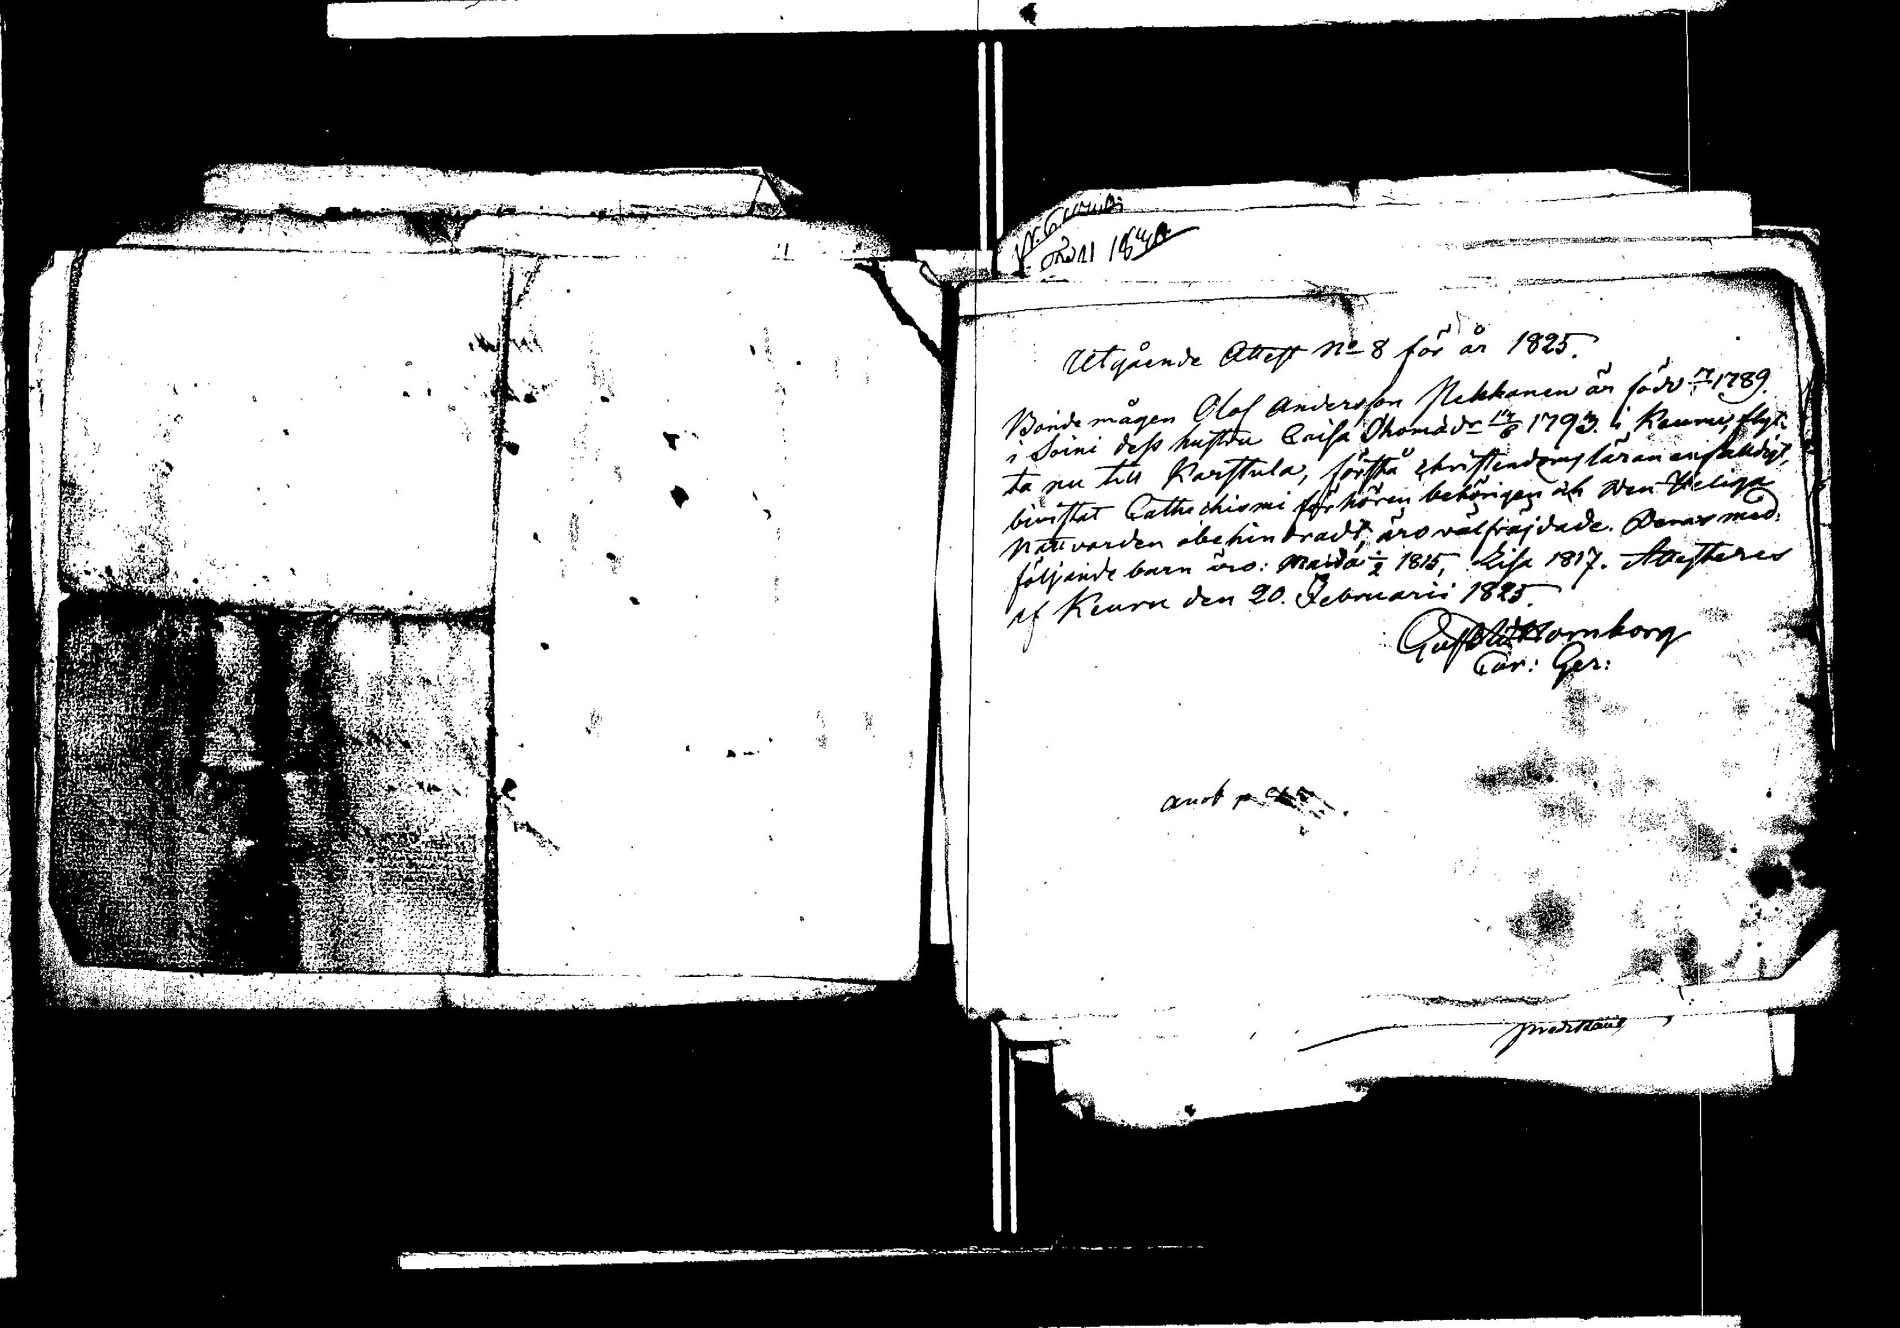 Utgående Attest No 8 för år 1825.
Bondemågen Olof Andersson Nekkonen är född 17/1 1789.
i Soini dess hustru Caisa Thomædr 14/8 1793. i Keuru, flyt-
ta nu till Karstula, förstå christendoms läran enfaldigt,
bivistat Cathechismi förhören behörigen och Den Heliga
Nattvarden obehindradt, äro välfräjdade. Deras med-
följande barn äro: Maida 1/2 1815, Lisa 1817. Attesteres
af Keuru den 20. Februarii 1825.
Gust W Hornborg